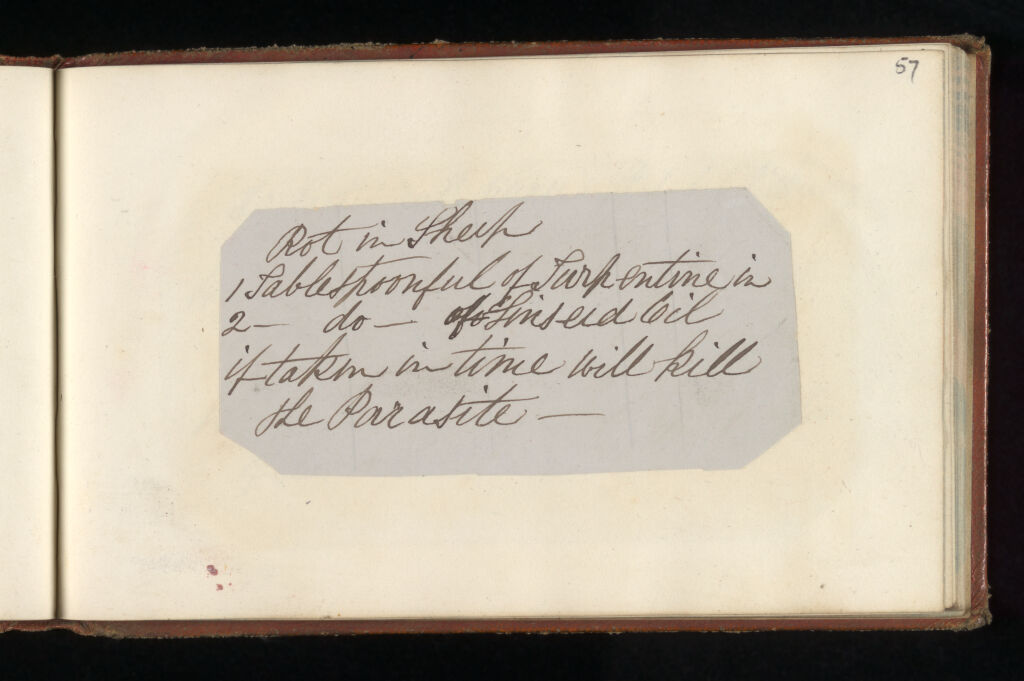 57
Rot in Sheep
1 Tablespoonful of Turpentine in
2 — do — of Linseed Oil
if taken in time will kill
the Parasite —